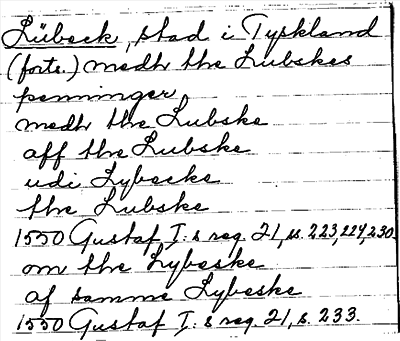 Lübeck, stad i Tyskland
(forts.) medh the Lubskes
penninger
medh the Lubske
aff the Lubske
udi Lybecke
the Lubske
1550 Gustaf I:s reg. 21, s. 223, 224, 230.
om the Lybeske
af samme Lybeske
1550 Gustaf I:s reg. 21, s. 233.